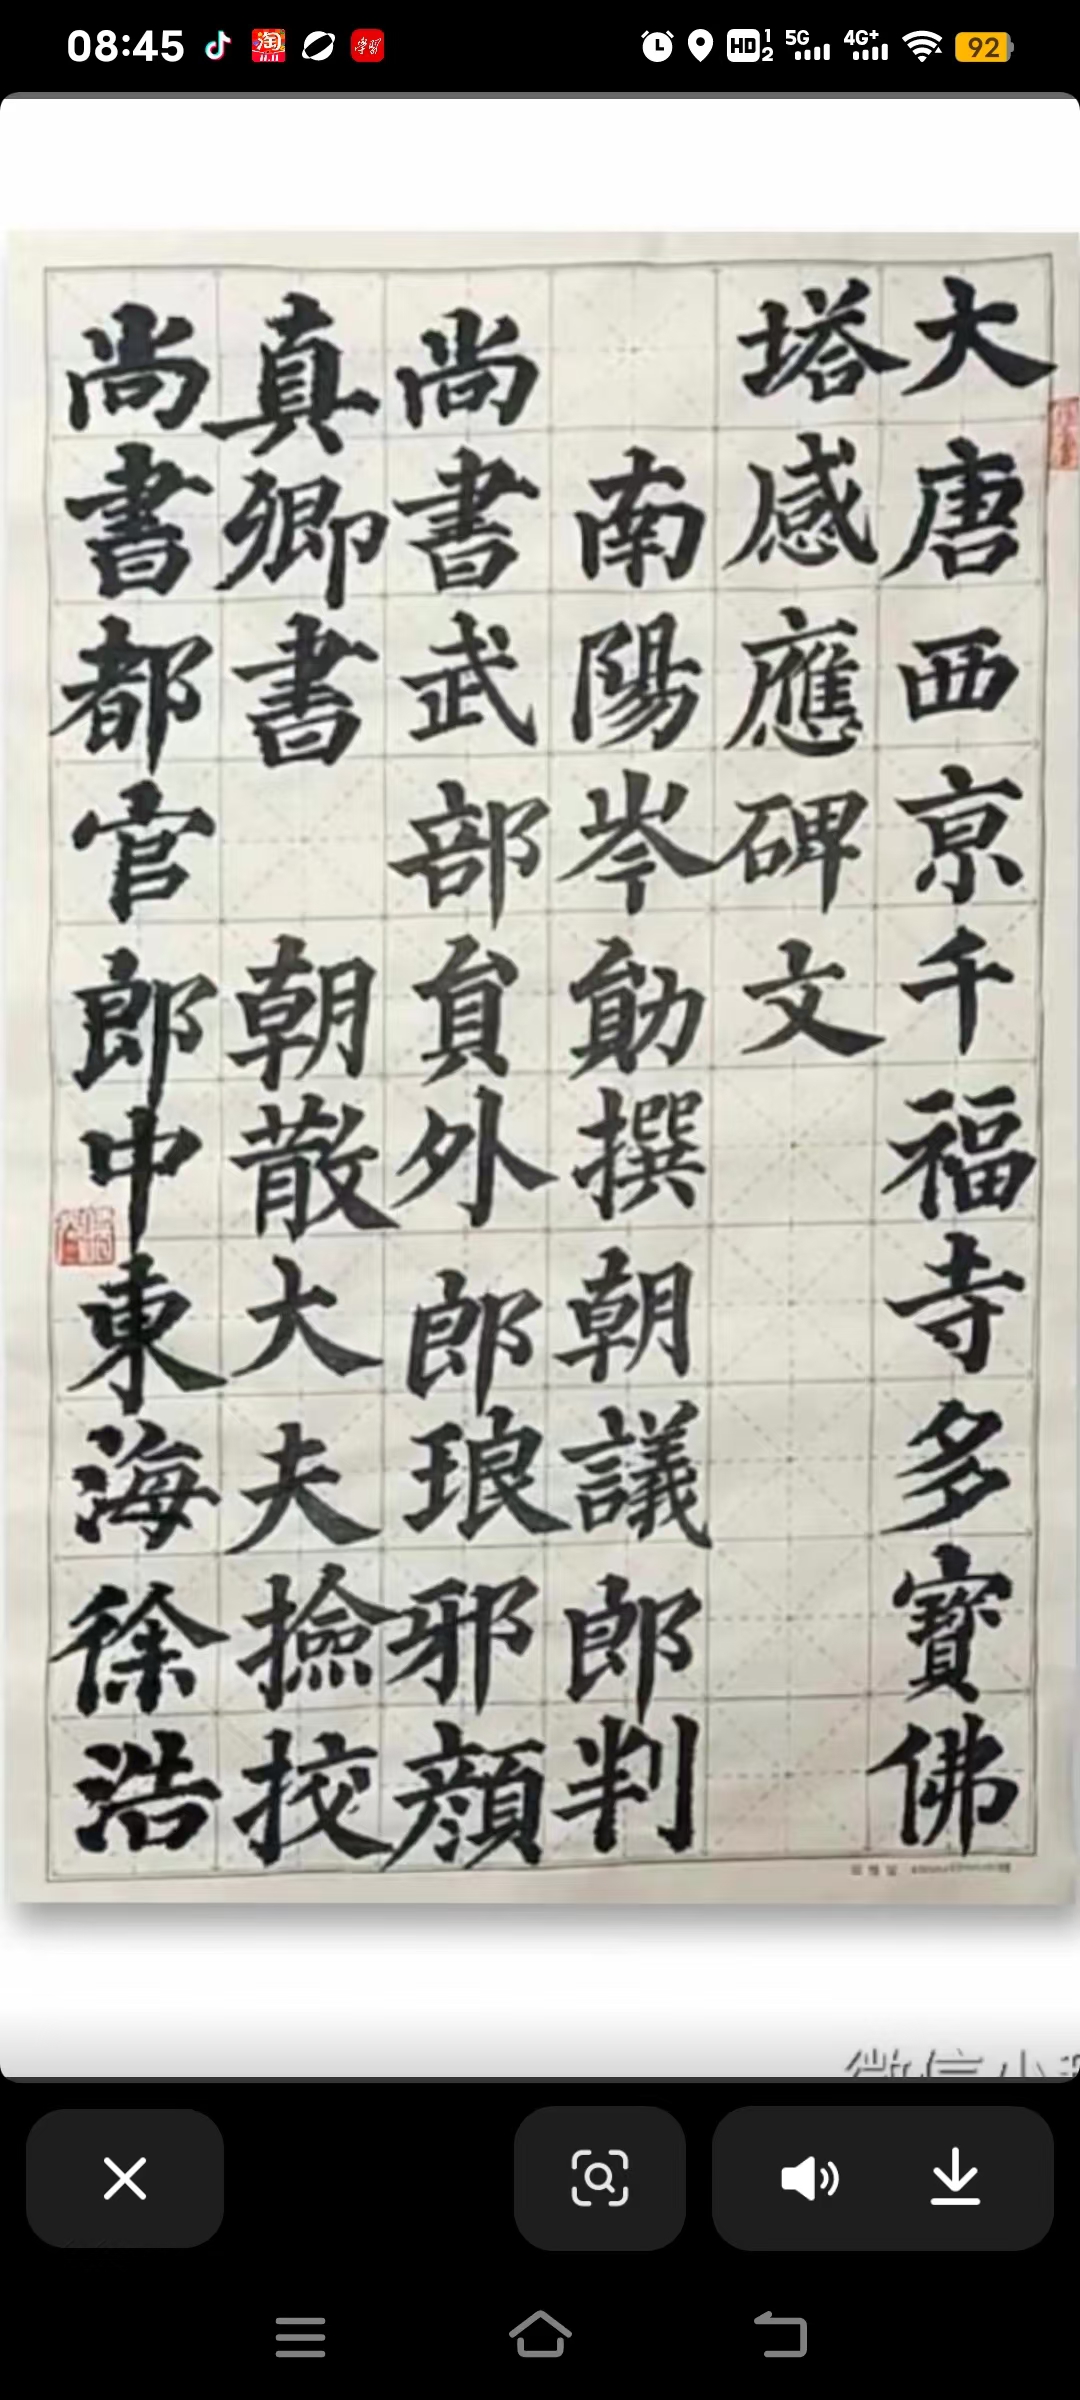 08:45
HD 1 2 5G 4G+ 92
大唐西京千福寺多寶佛
塔感應碑文
南陽岑勛撰朝議郎判
尚書武部貟外郎琅邪顔
真卿書 朝散大夫撿挍
尚書都官郎中東海徐浩
微信小